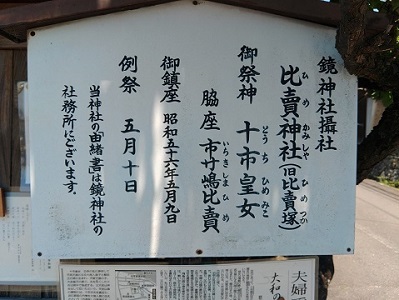 鏡神社攝社
比賣神社(旧比賣塚)
ひめかみしゃ ひめつか
御祭神 十市皇女
とうちひめみこ
脇座 市杵嶋比賣
いちきしまひめ
御鎮座 昭和五十六年五月九日
例祭 五月十日
当神社の「由緒書」は鏡神社の
社務所にございます。
夫婦
大和の